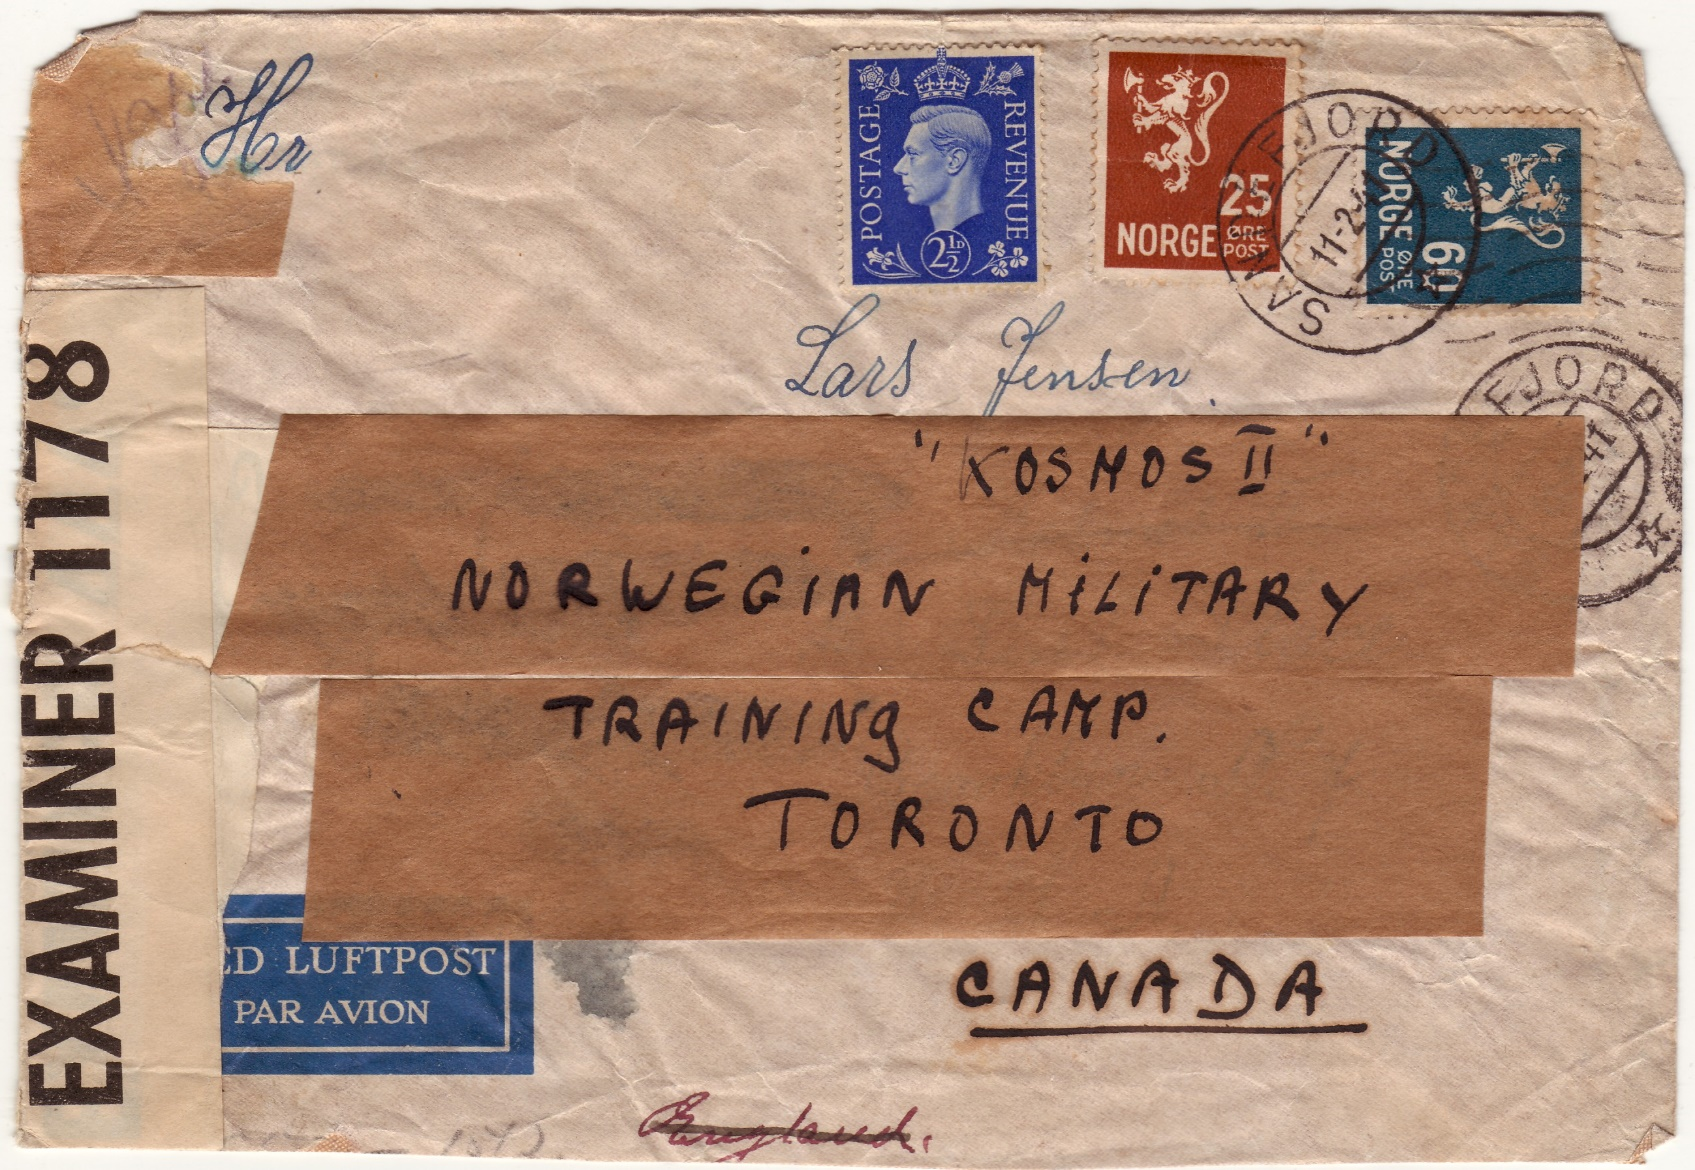 Hr
POSTAGE
REVENUE
2½D
25
NORGE ØRE
POST
NORGE ØRE
POST
60
FJORD
11-2-41
SAN
FJORD
41
Lars Jensen.
"KOSMOS II"
NORWEGIAN MILITARY
TRAINING CAMP.
TORONTO
CANADA
EXAMINER 1178
ED LUFTPOST
PAR AVION
England.